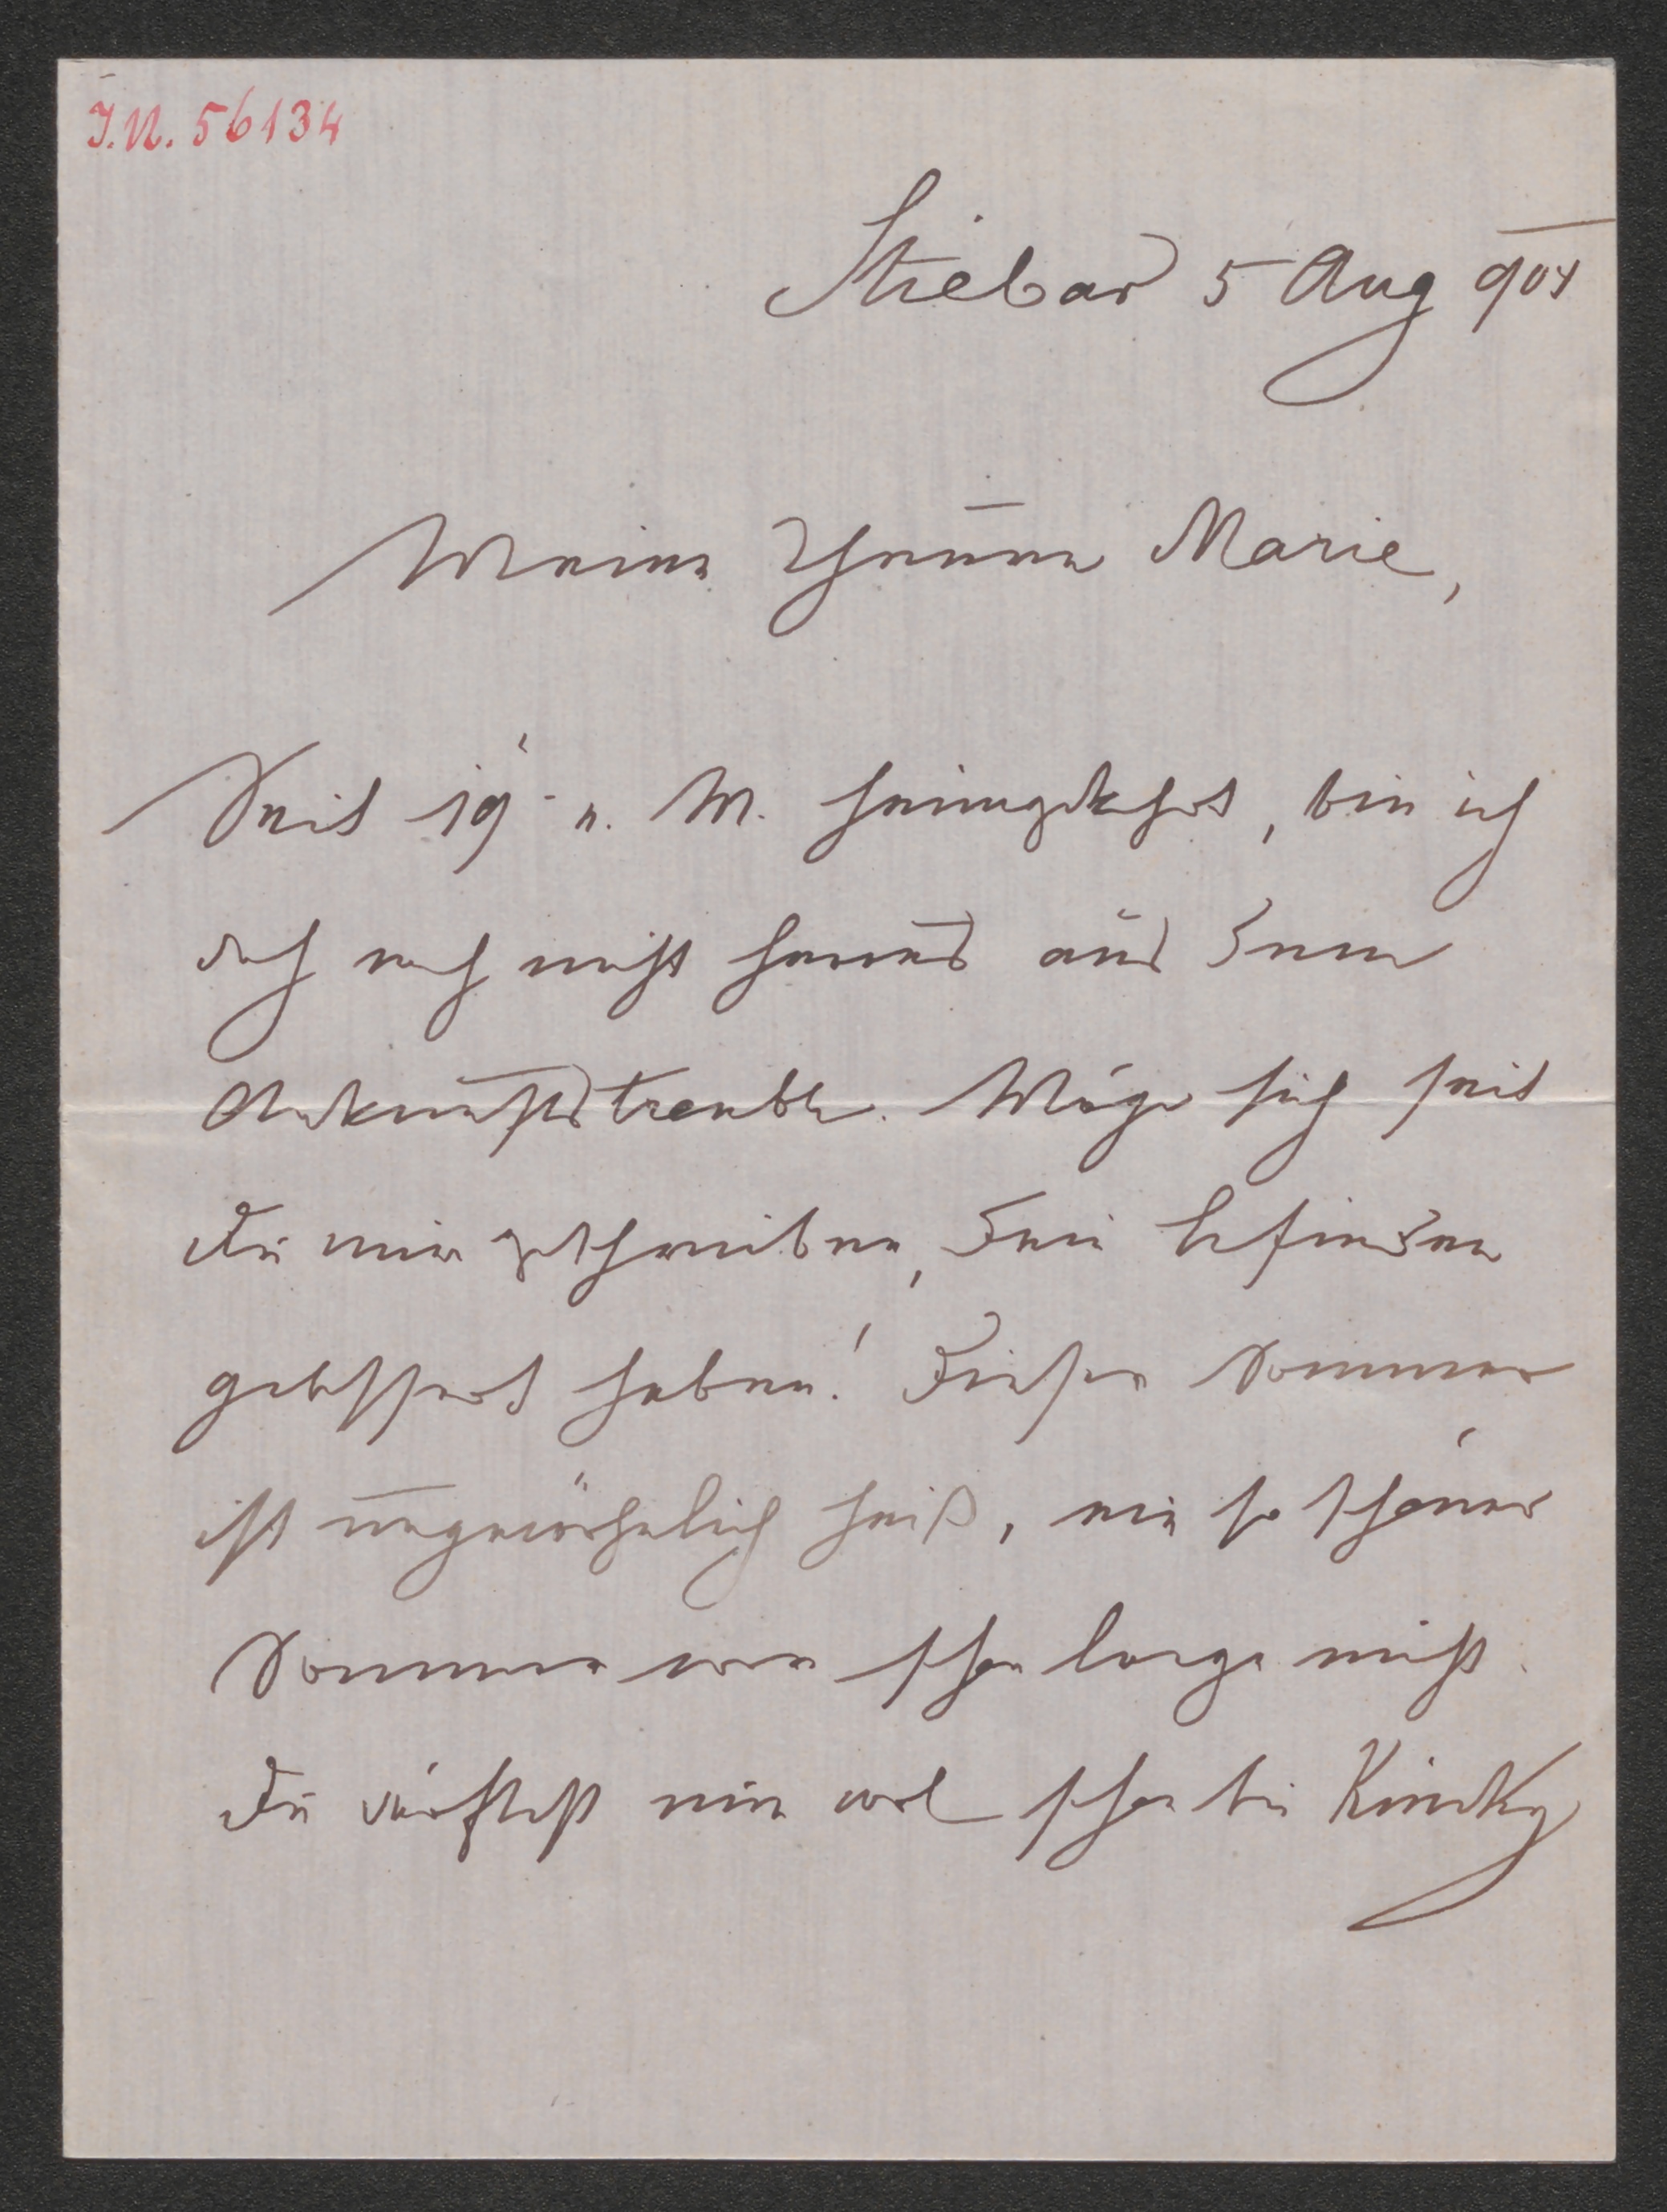 I.N. 56134
Stiebar 5 Aug 904
Meine Theuere Marie,
Seit 19 v. M. heimgekehrt, bin ich
doch noch nicht heraus aus dem
Ankunftstrouble. Möge sich seit
Du mir geschrieben, Dein befinden
gebessert haben! Dieser Sommer
ist ungewöhnlich heiß, ein so schöner
Sommer war schon lange nicht.
Du dürftest nun wol schon bei Kinsky